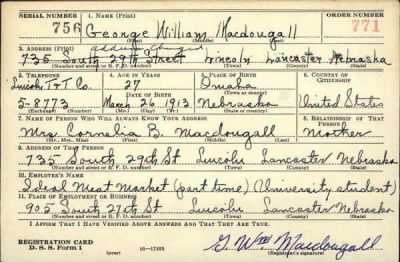 SERIAL NUMBER 1. NAME (Print) ORDER NUMBER
756 George William Macdougall 771
(First) (Middle) (Last)
2. ADDRESS (Print) address changed
735 South 29th Street Lincoln Lancaster Nebraska
(Number and street or R. F. D. number) (Town) (County) (State)
3. TELEPHONE 4. AGE IN YEARS 5. PLACE OF BIRTH 6. COUNTRY OF CITIZENSHIP
Lincoln T&T Co. 27 Omaha
DATE OF BIRTH (Town or county)
5-8773 March 26 1913 Nebraska United States
(Exchange) (Number) (Mo.) (Day) (Yr.) (State or country)
7. NAME OF PERSON WHO WILL ALWAYS KNOW YOUR ADDRESS 8. RELATIONSHIP OF THAT PERSON
Mrs. Cornelia B. Macdougall Mother
(Mr., Mrs., Miss) (First) (Middle) (Last)
9. ADDRESS OF THAT PERSON
735 South 29th St Lincoln Lancaster Nebraska
(Number and street or R. F. D. number) (Town) (County) (State)
10. EMPLOYER'S NAME
Ideal Meat Market (part time) (University student)
11. PLACE OF EMPLOYMENT OR BUSINESS
905 South 27th St Lincoln Lancaster Nebraska
(Number and street or R. F. D. number) (Town) (County) (State)
I AFFIRM THAT I HAVE VERIFIED ABOVE ANSWERS AND THAT THEY ARE TRUE.
REGISTRATION CARD
D. S. S. Form 1 (over) 16-17105 G. Wm Macdougall
(Registrant's signature)